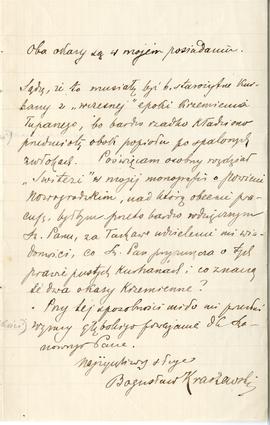 Oba okazy są w mojem posiadaniu.
Sądzę, iż to musiały być b. starożytne kur-
hany z „wczesnej” epoki krzemienia
łupanego, bo bardzo rzadko kładziono
przedmioty obok popiołu po spalonych
zwłokach. Poświęcam osobny rozdział
„Świtezi” w mojej monografii o powiecie
Nowogródzkim, nad którą obecnie pra-
cuję, byłbym przeto bardzo wdzięcznym
Sz. Panu, za łaskawe udzielenie mi wia-
domości, co Sz. Pan przypuszcza o tych
prawie pustych kurhanach i co znaczą
te dwa okazy krzemienne?
Przy tej sposobności miło mi przesłać
wyrazy głębokiego poważania dla Sza-
nownego Pana.
Najżyczliwszy sługa
Bogusław Kraszewski